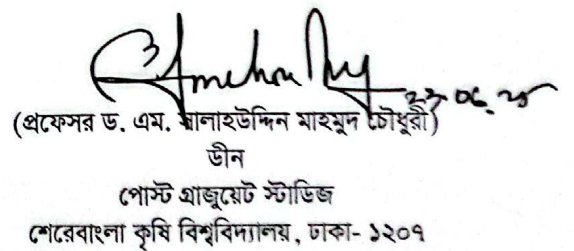 ২৩.০৬.২৫
(প্রফেসর ড. এম. সালাহউদ্দিন মাহমুদ চৌধুরী)
ডীন
পোস্ট গ্রাজুয়েট স্টাডিজ
শেরেবাংলা কৃষি বিশ্ববিদ্যালয়, ঢাকা- ১২০৭